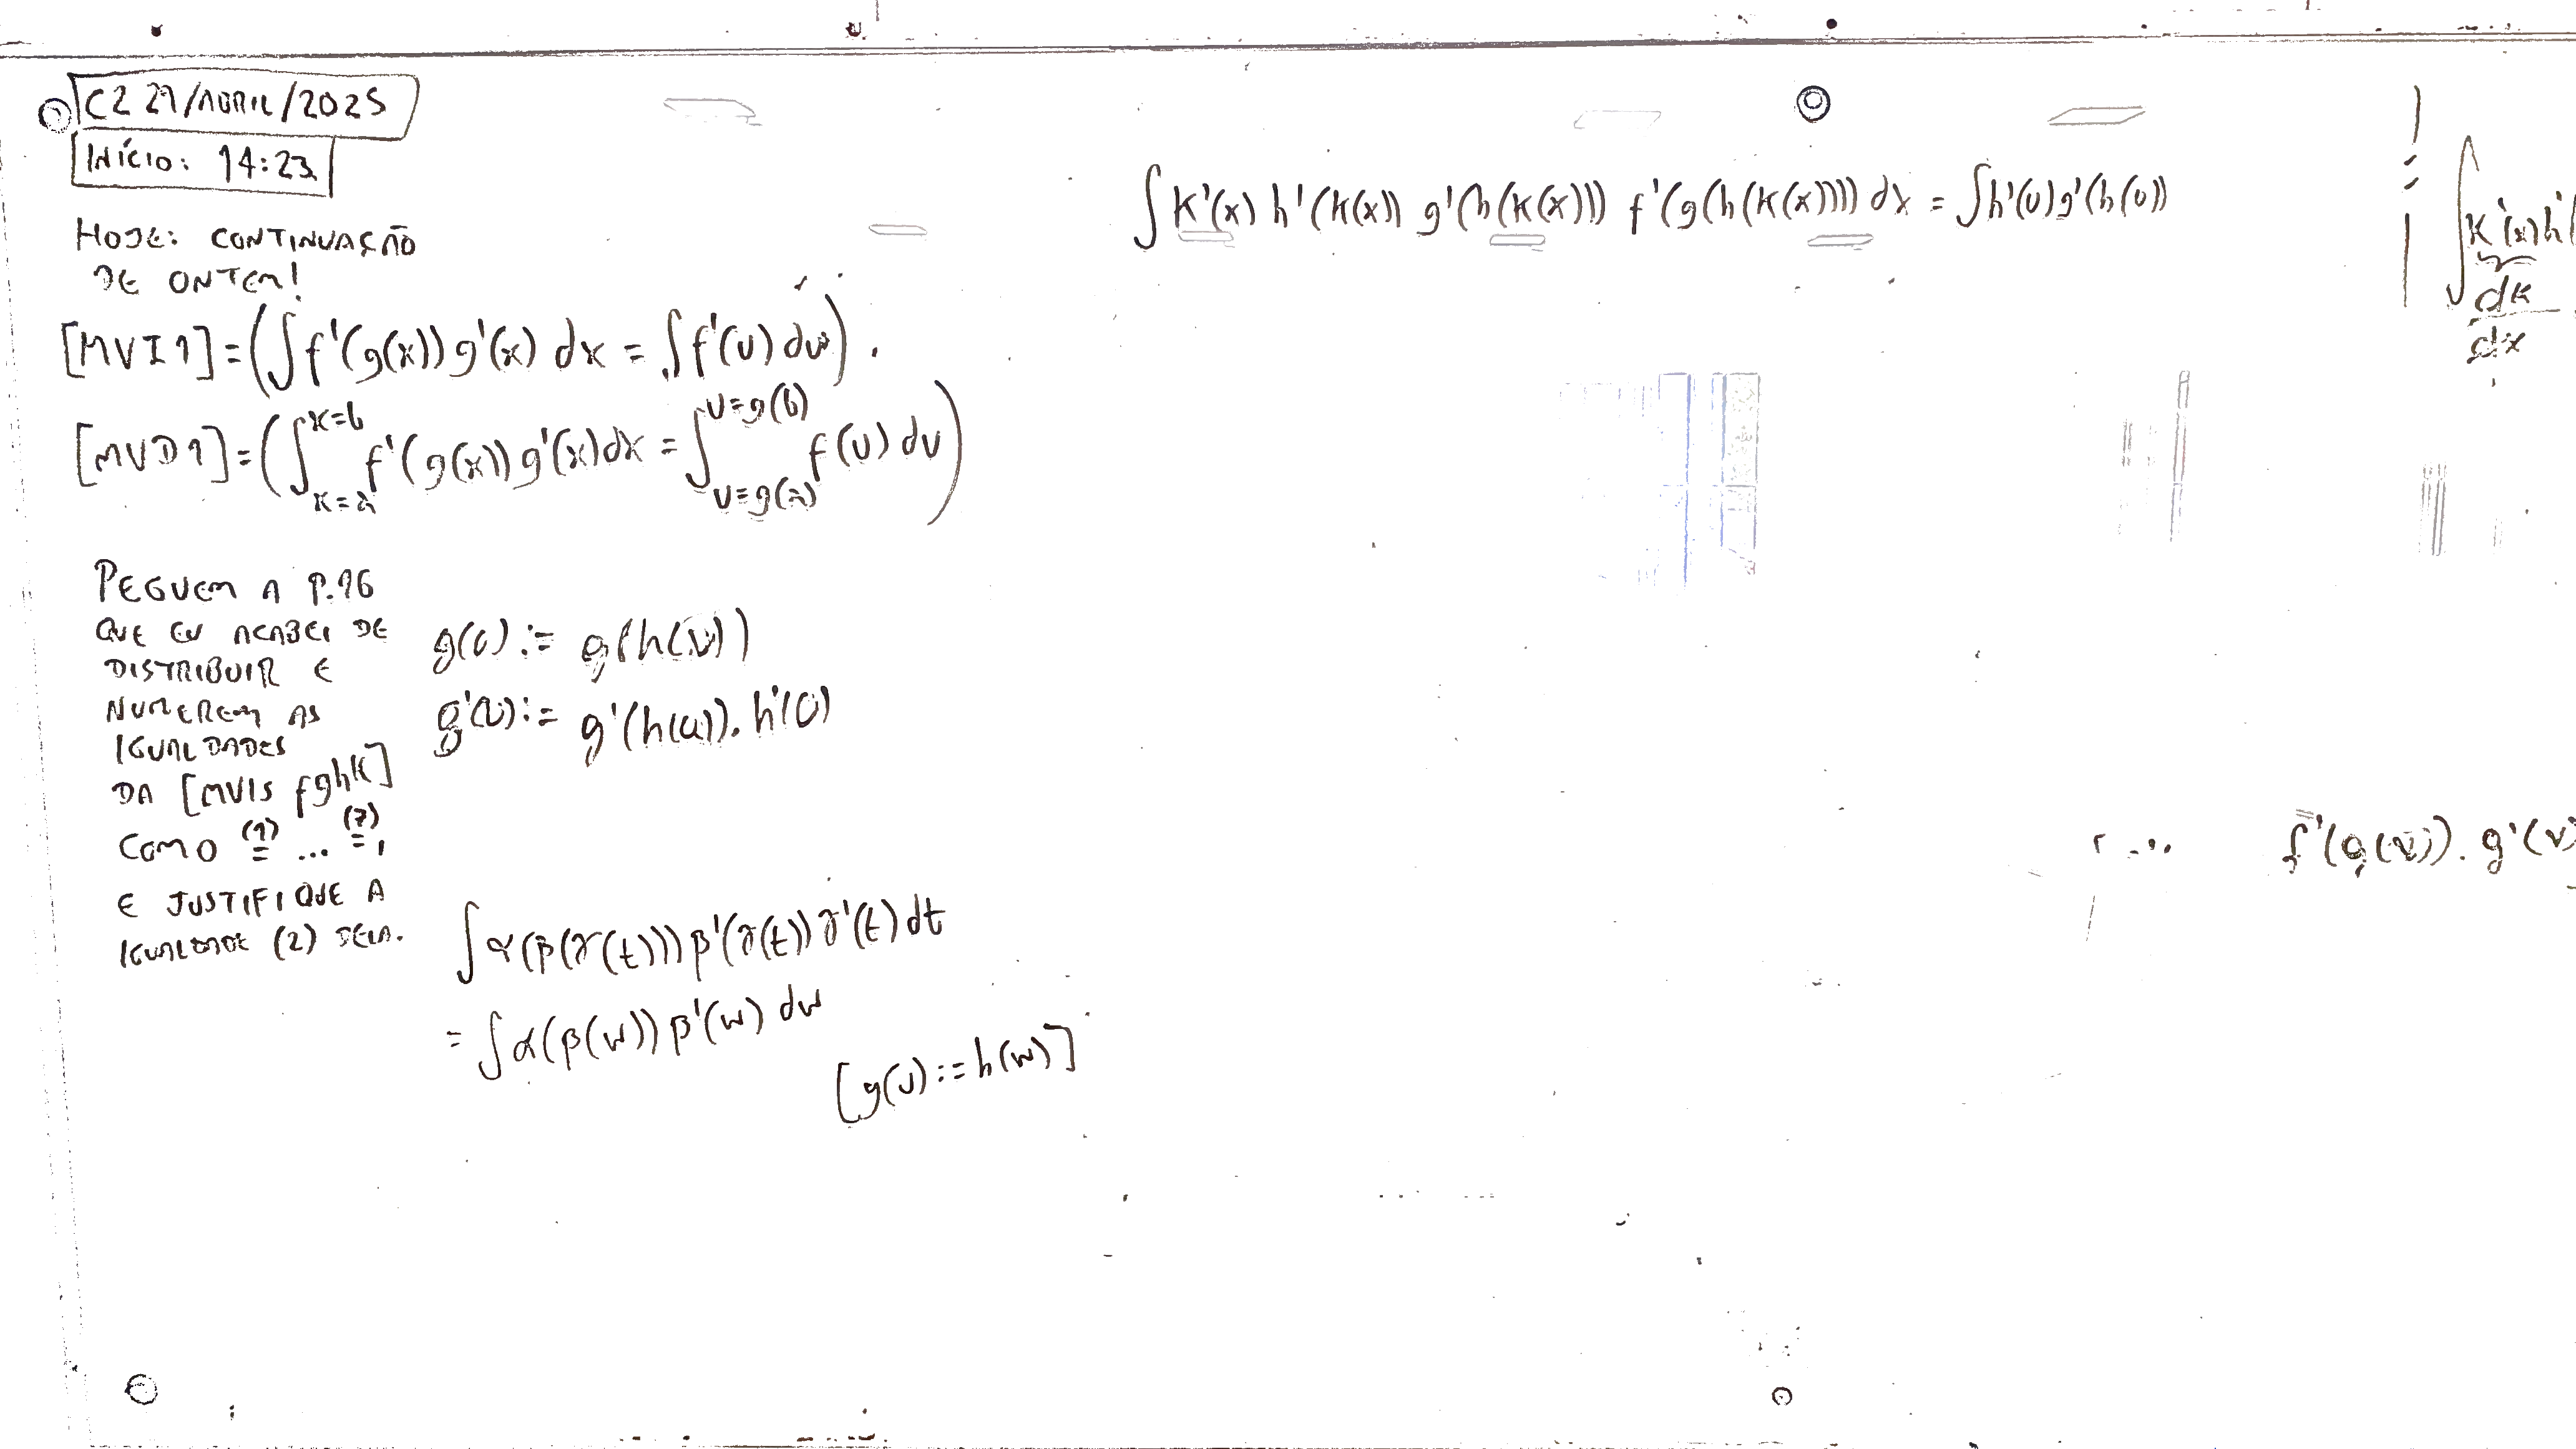 C2 29/ABRIL/2025
INÍCIO: 14:23
HOJE: CONTINUAÇÃO
DE ONTEM!
[MVI1] = (∫ f'(g(x)) g'(x) dx = ∫ f'(u) du).
[MVD1] = (∫_{x=a}^{x=b} f'(g(x)) g'(x) dx = ∫_{u=g(a)}^{u=g(b)} f(u) du)
PEGUEM A P.16
QUE EU ACABEI DE
DISTRIBUIR E
NUMEREM AS
IGUALDADES
DA [MVIS fghk]
COMO (1)= ... (7)=,
E JUSTIFIQUE A
IGUALDADE (2) DELA.
g(u) := g(h(u))
g'(u) := g'(h(u)). h'(u)
∫ α(β(γ(t))) β'(γ(t)) γ'(t) dt
= ∫ α(β(w)) β'(w) dw
[g(u) := h(w)]
∫ k'(x) h'(k(x)) g'(h(k(x))) f'(g(h(k(x)))) dx = ∫ h'(u) g'(h(u))
∫ k'(x) h'(
dk
dx
f'(g(v)). g'(v)